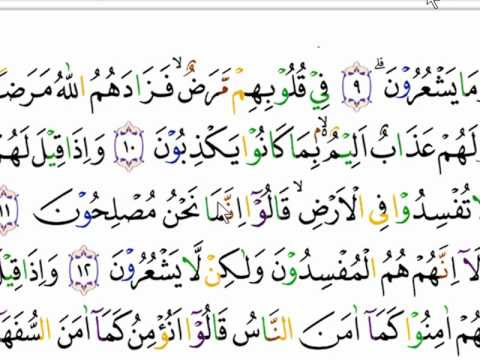 وَمَا يَشْعُرُوْنَ ۗ ٩ فِيْ قُلُوْبِهِمْ مَّرَضٌۙ فَزَادَهُمُ اللّٰهُ مَرَضًا
وَلَهُمْ عَذَابٌ اَلِيْمٌ ۢۙ بِمَا كَانُوْا يَكْذِبُوْنَ ١٠ وَاِذَا قِيْلَ لَهُمْ
لَا تُفْسِدُوْا فِى الْاَرْضِۙ قَالُوْٓا اِنَّمَا نَحْنُ مُصْلِحُوْنَ ١١
اَلَآ اِنَّهُمْ هُمُ الْمُفْسِدُوْنَ وَلٰكِنْ لَّا يَشْعُرُوْنَ ١٢ وَاِذَا قِيْلَ
لَهُمْ اٰمِنُوْا كَمَآ اٰمَنَ النَّاسُ قَالُوْٓا اَنُؤْمِنُ كَمَآ اٰمَنَ السُّفَهَاۤءُ